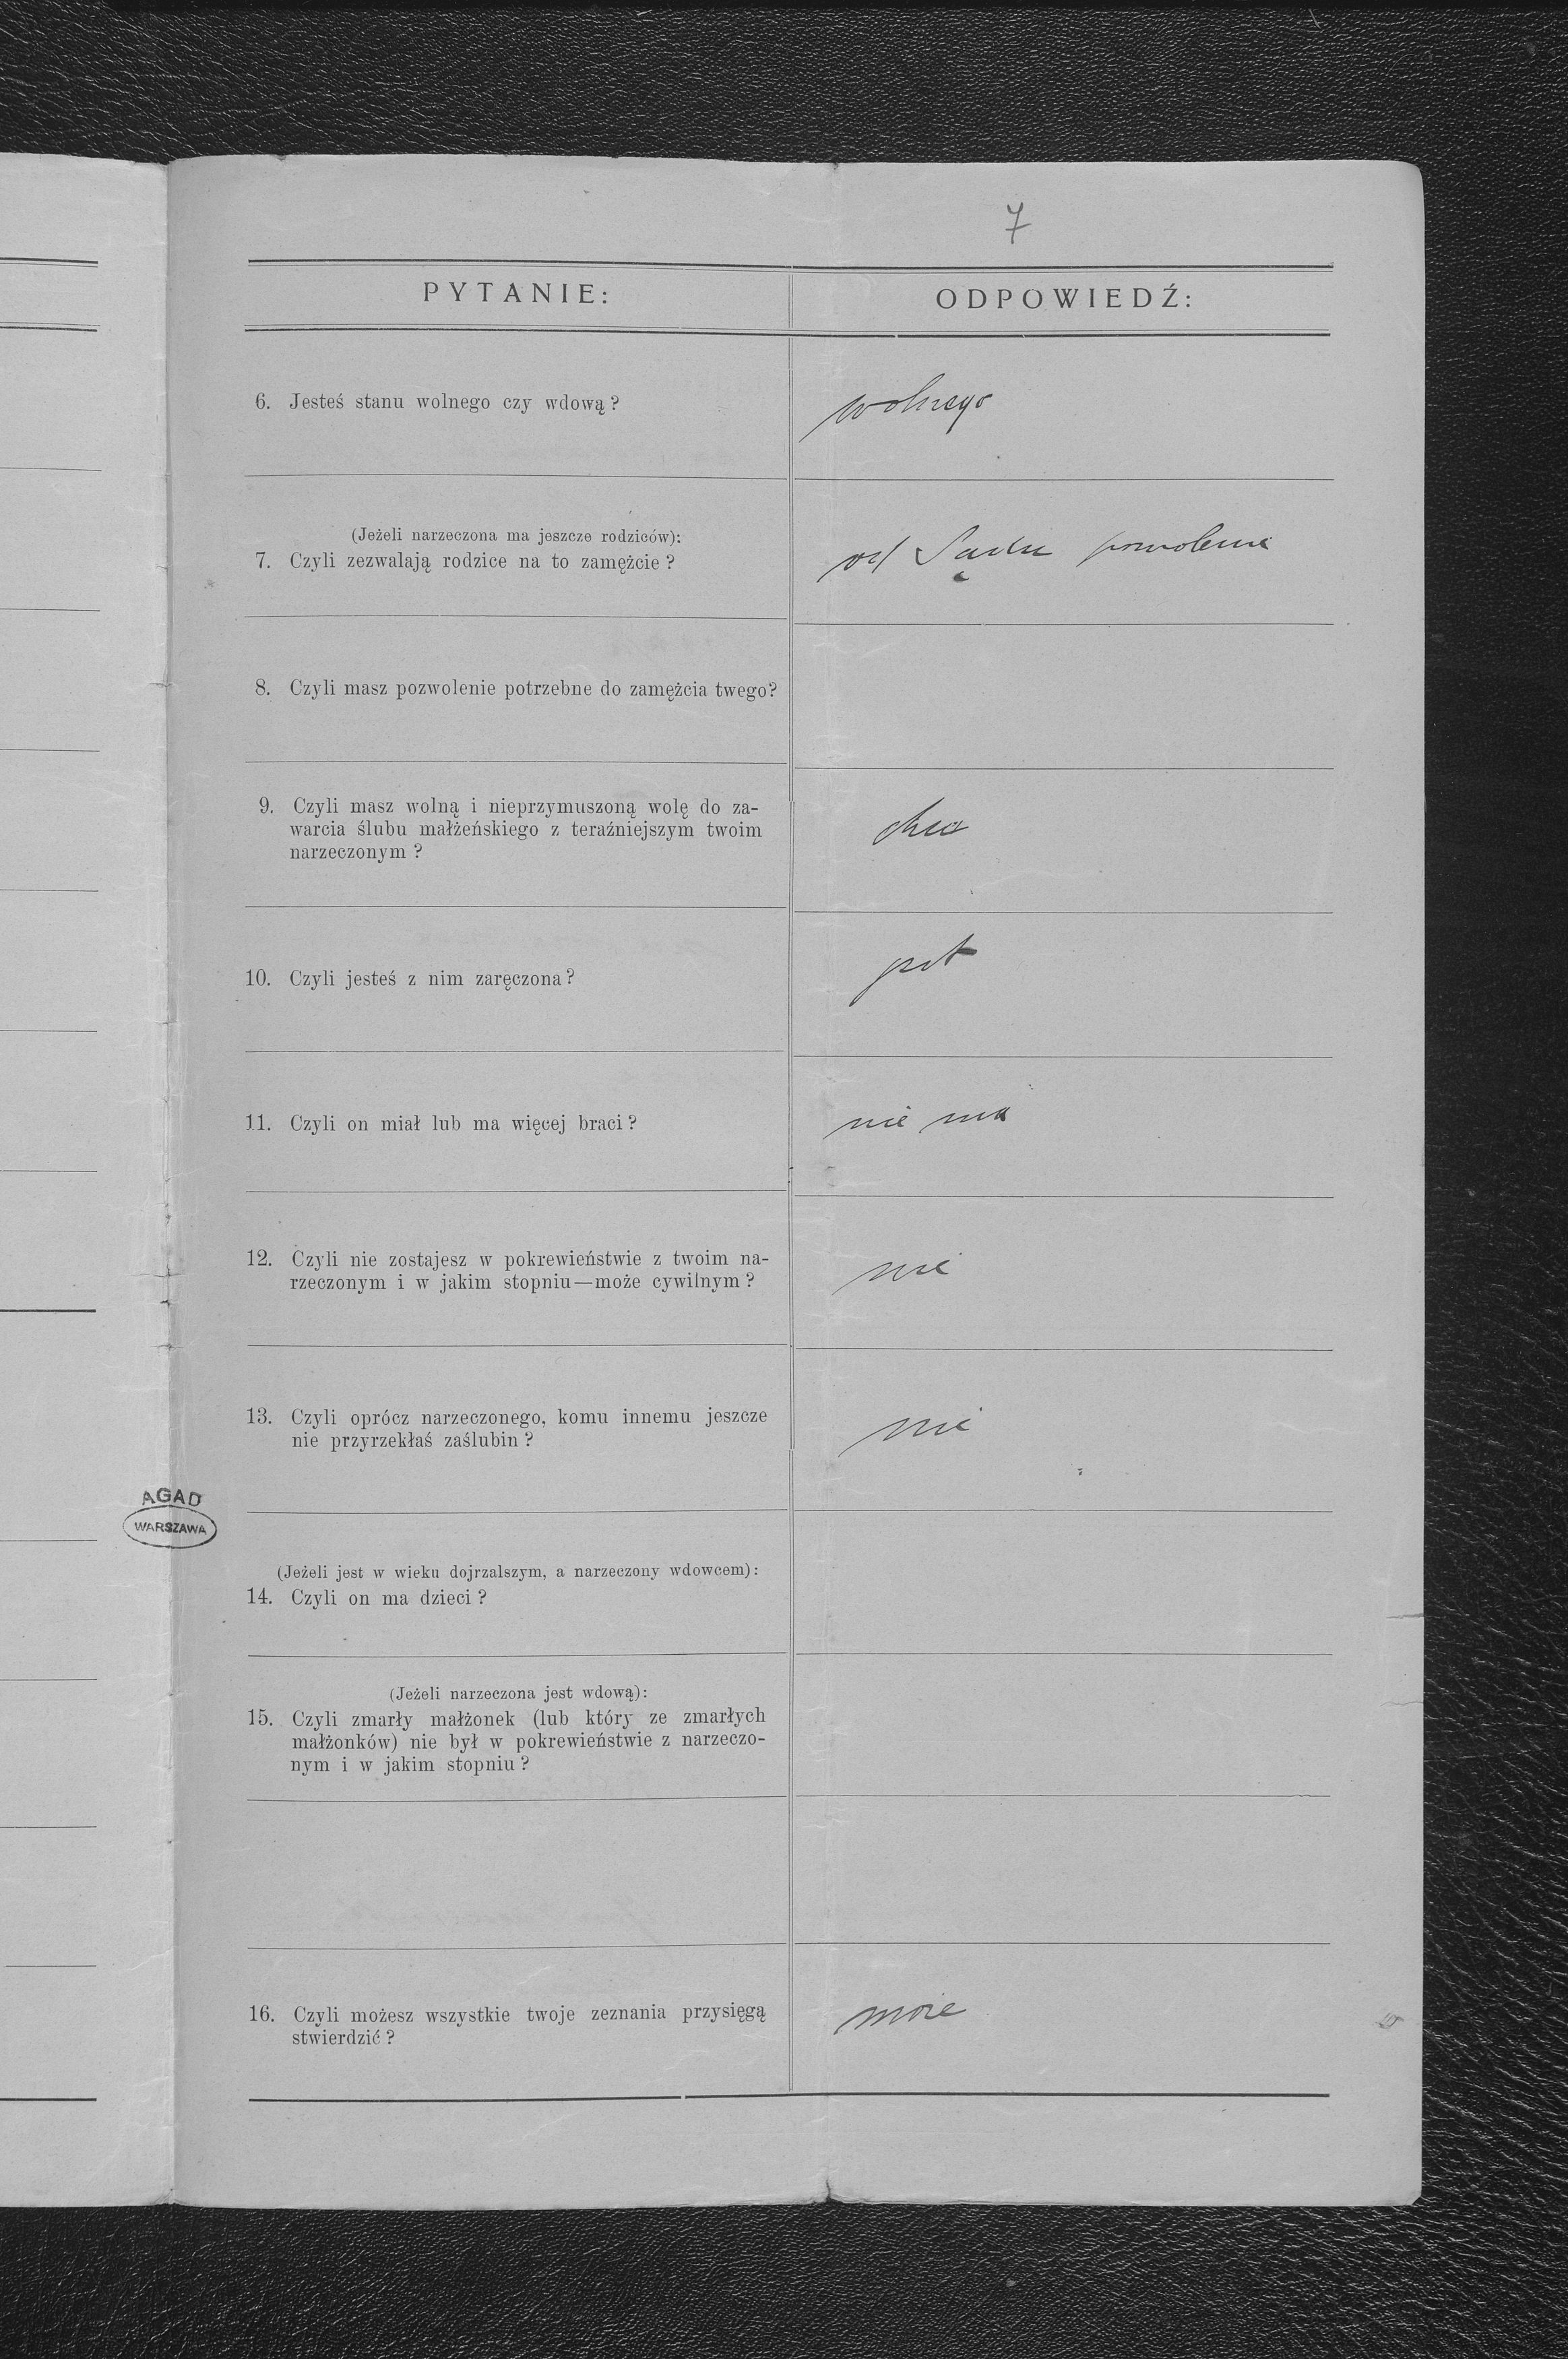 7
PYTANIE:
ODPOWIEDŹ:
6. Jesteś stanu wolnego czy wdową?
wolnego
(Jeżeli narzeczona ma jeszcze rodziców):
7. Czyli zezwalają rodzice na to zamężcie?
od Sądu pozwolenie
8. Czyli masz pozwolenie potrzebne do zamężcia twego?
9. Czyli masz wolną i nieprzymuszoną wolę do za-
warcia ślubu małżeńskiego z teraźniejszym twoim
narzeczonym?
chce
10. Czyli jesteś z nim zaręczona?
jest
11. Czyli on miał lub ma więcej braci?
nie ma
12. Czyli nie zostajesz w pokrewieństwie z twoim na-
rzeczonym i w jakim stopniu—może cywilnym?
nie
13. Czyli oprócz narzeczonego, komu innemu jeszcze
nie przyrzekłaś zaślubin?
nie
AGAD
WARSZAWA
(Jeżeli jest w wieku dojrzalszym, a narzeczony wdowcem):
14. Czyli on ma dzieci?
(Jeżeli narzeczona jest wdową):
15. Czyli zmarły małżonek (lub który ze zmarłych
małżonków) nie był w pokrewieństwie z narzeczo-
nym i w jakim stopniu?
16. Czyli możesz wszystkie twoje zeznania przysięgą
stwierdzić?
może